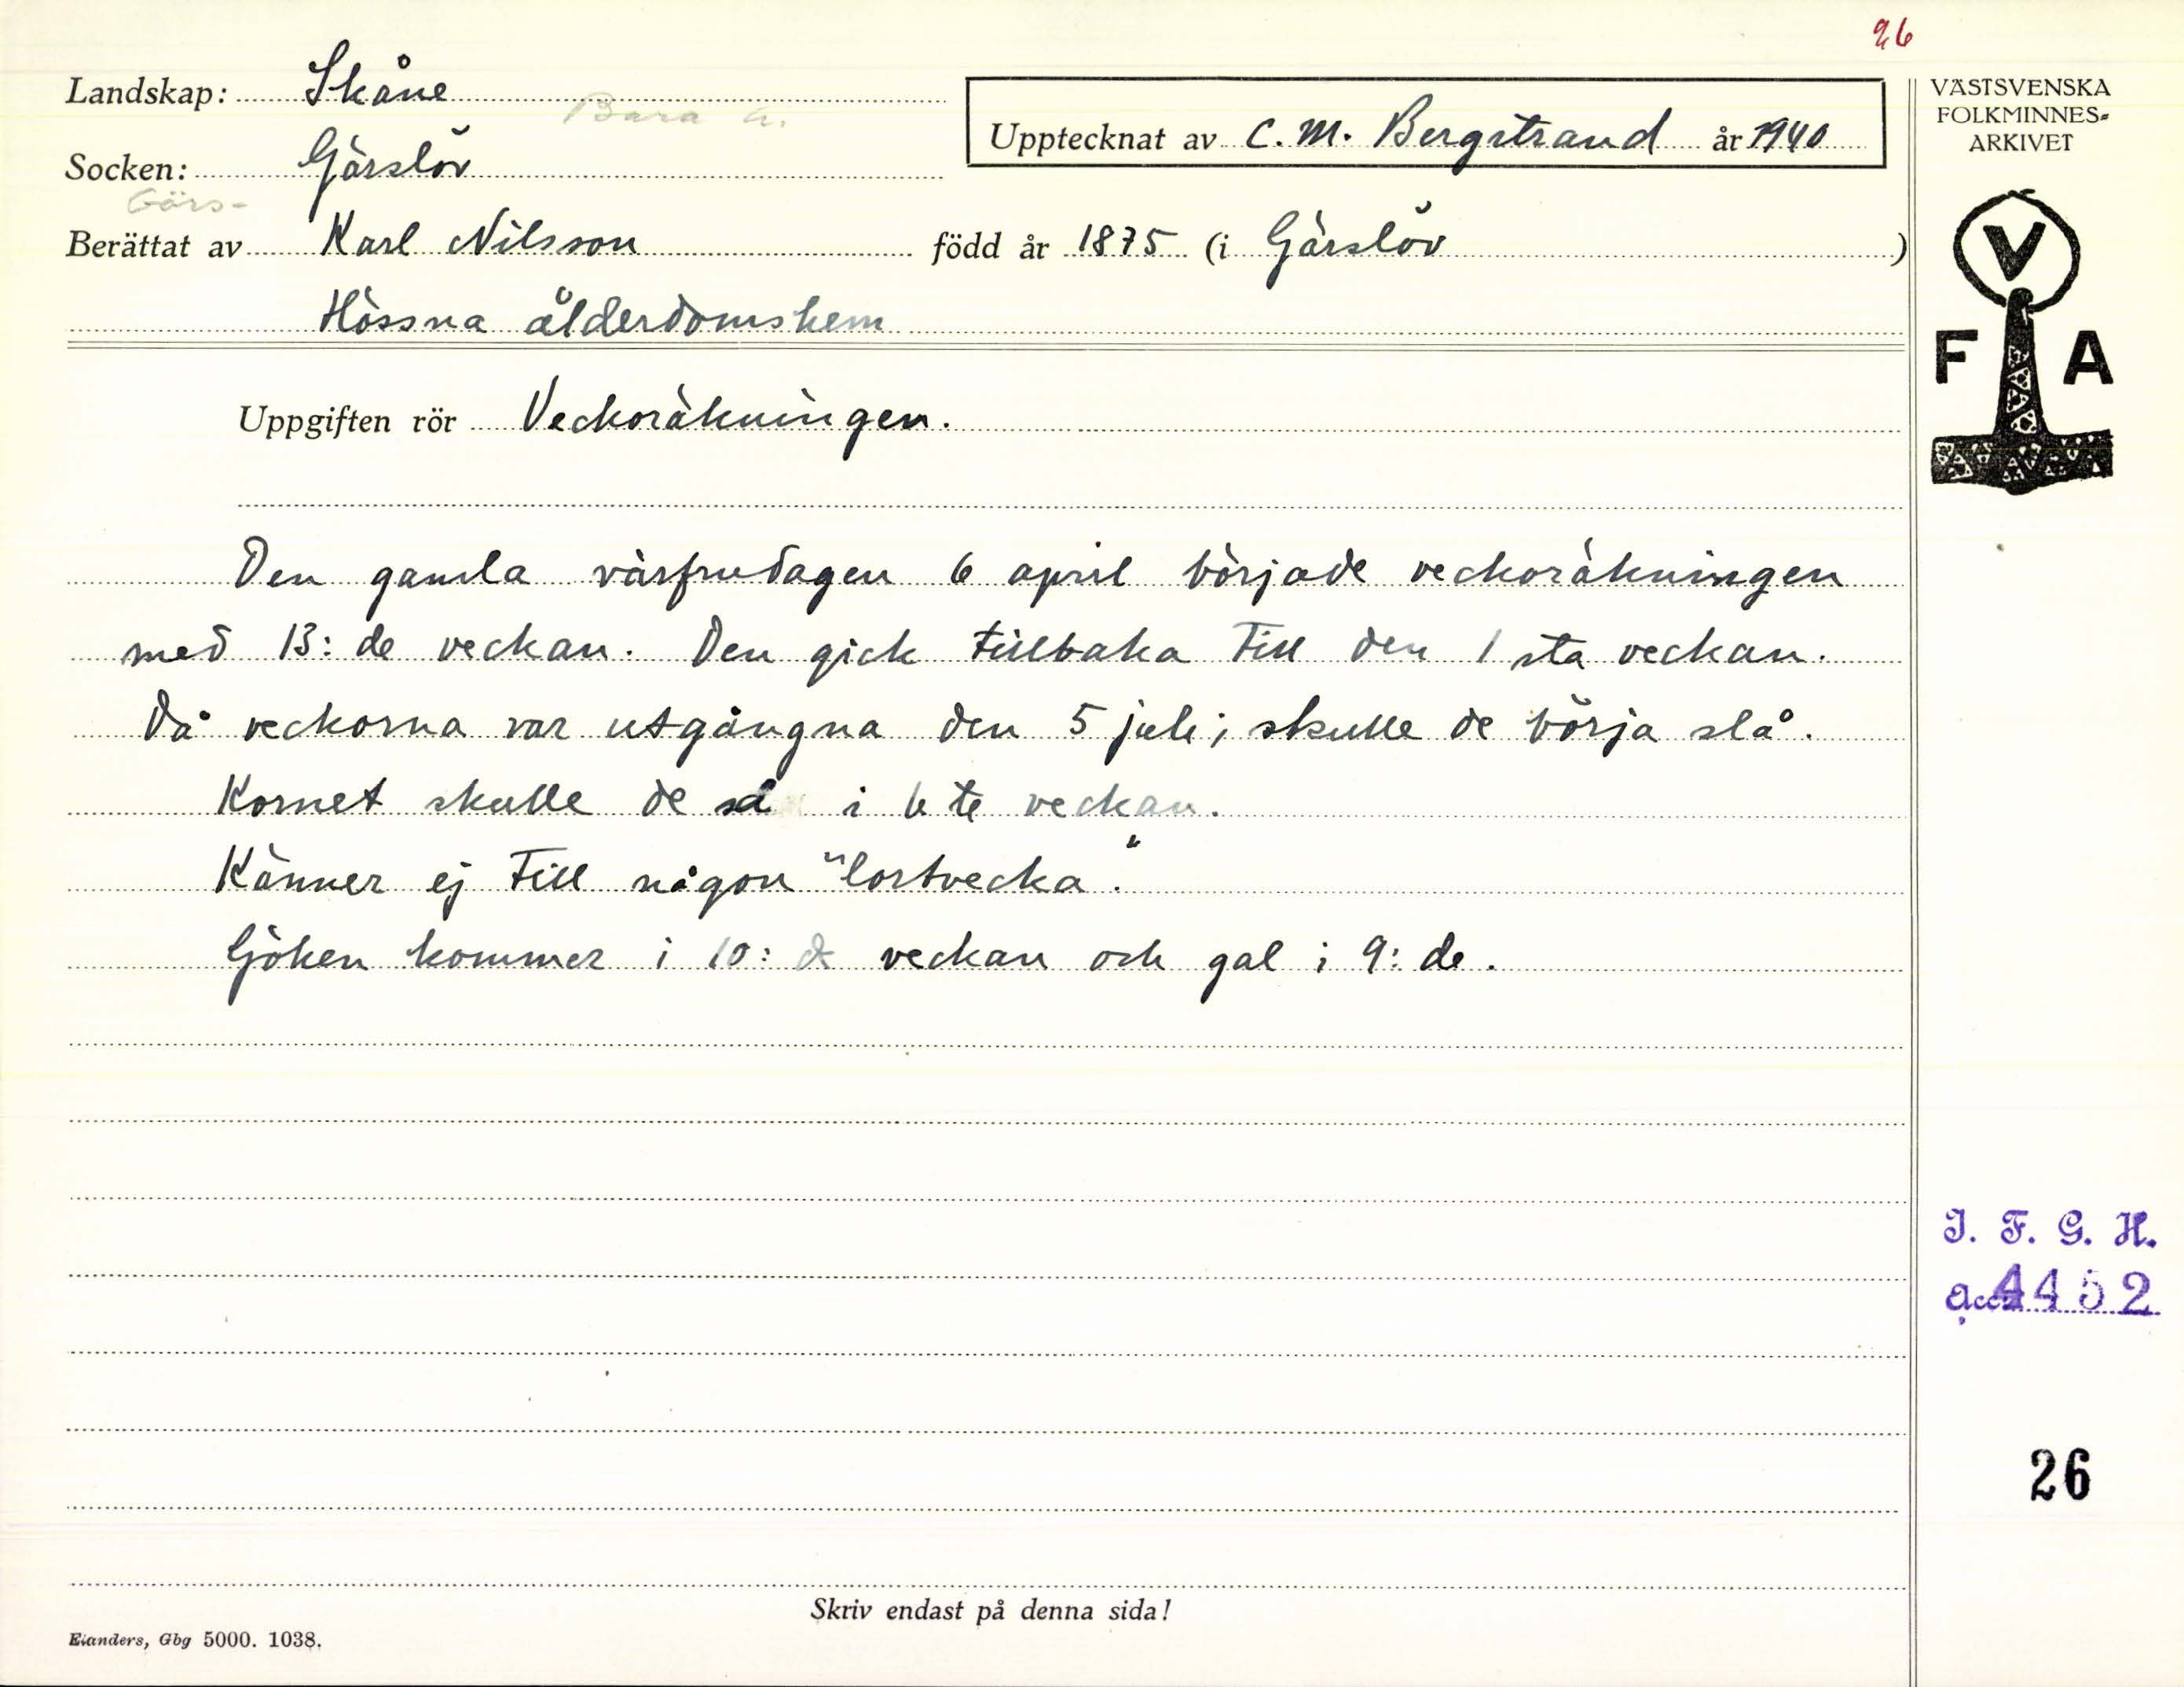 26
Landskap: Skåne
Bara h.
Upptecknat av C. M. Bergstrand år 1940
VÄSTSVENSKA
FOLKMINNES=
ARKIVET
Socken: Gärslöv
Görs-
Berättat av Karl Nilsson född år 1875 (i Gärslöv)
Hössna ålderdomshem
V
F A
Uppgiften rör Veckoräkningen.
Den gamla vårfrudagen 6 april började veckoräkningen
med 13:de veckan. Den gick tillbaka till den 1sta veckan.
Då veckorna var utgångna den 5 juli, skulle de börja slå.
Kornet skulle de så i 6te veckan.
Känner ej till någon "lortvecka".
Göken kommer i 10:de veckan och gal i 9:de.
I. F. G. H.
Acc. 4452
26
Skriv endast på denna sida!
Elanders, Gbg 5000. 1038.